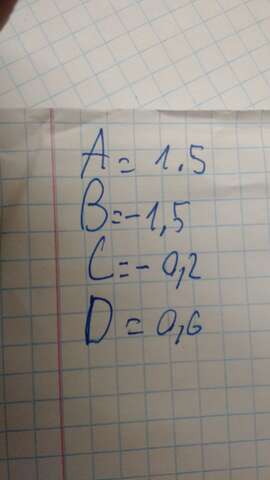 A = 1.5
B = -1,5
C = - 0,2
D = 0,6